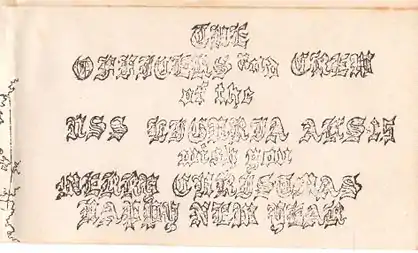 THE
OFFICERS and CREW
of the
USS LIGURIA AKS15
wish you
MERRY CHRISTMAS
HAPPY NEW YEAR